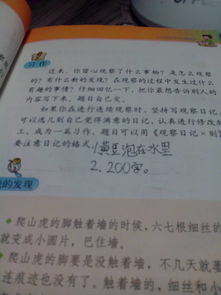 习作
近来,你留心观察了什么事物?是怎么观察
的?有什么新的发现?在观察的过程中发生过什么
有趣的事情?仔细回忆一下,把你最想告诉别人的
内容写下来,题目自己定。
如果你在进行连续观察时,坚持写观察日记,
可以选几则自己觉得满意的日记,认真进行修改加
工,成为一篇习作,题目可以用《观察日记×则》
要注意日记的格式
黄豆泡在水里
2.200字。
的发现
爬山虎的脚触着墙的时候,六七根细丝的
就变成小圆片,巴住墙。
爬山虎的脚要是没触着墙,不几天就萎
连痕迹也没有了。触着墙的,细丝和小